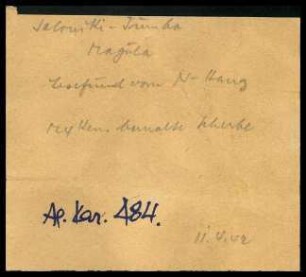 Saloniki - Tumba
Magula
Lesefund vom N-Hang
Myken. bemalte Scherbe
Ap. Kar. 484.
11.4.42